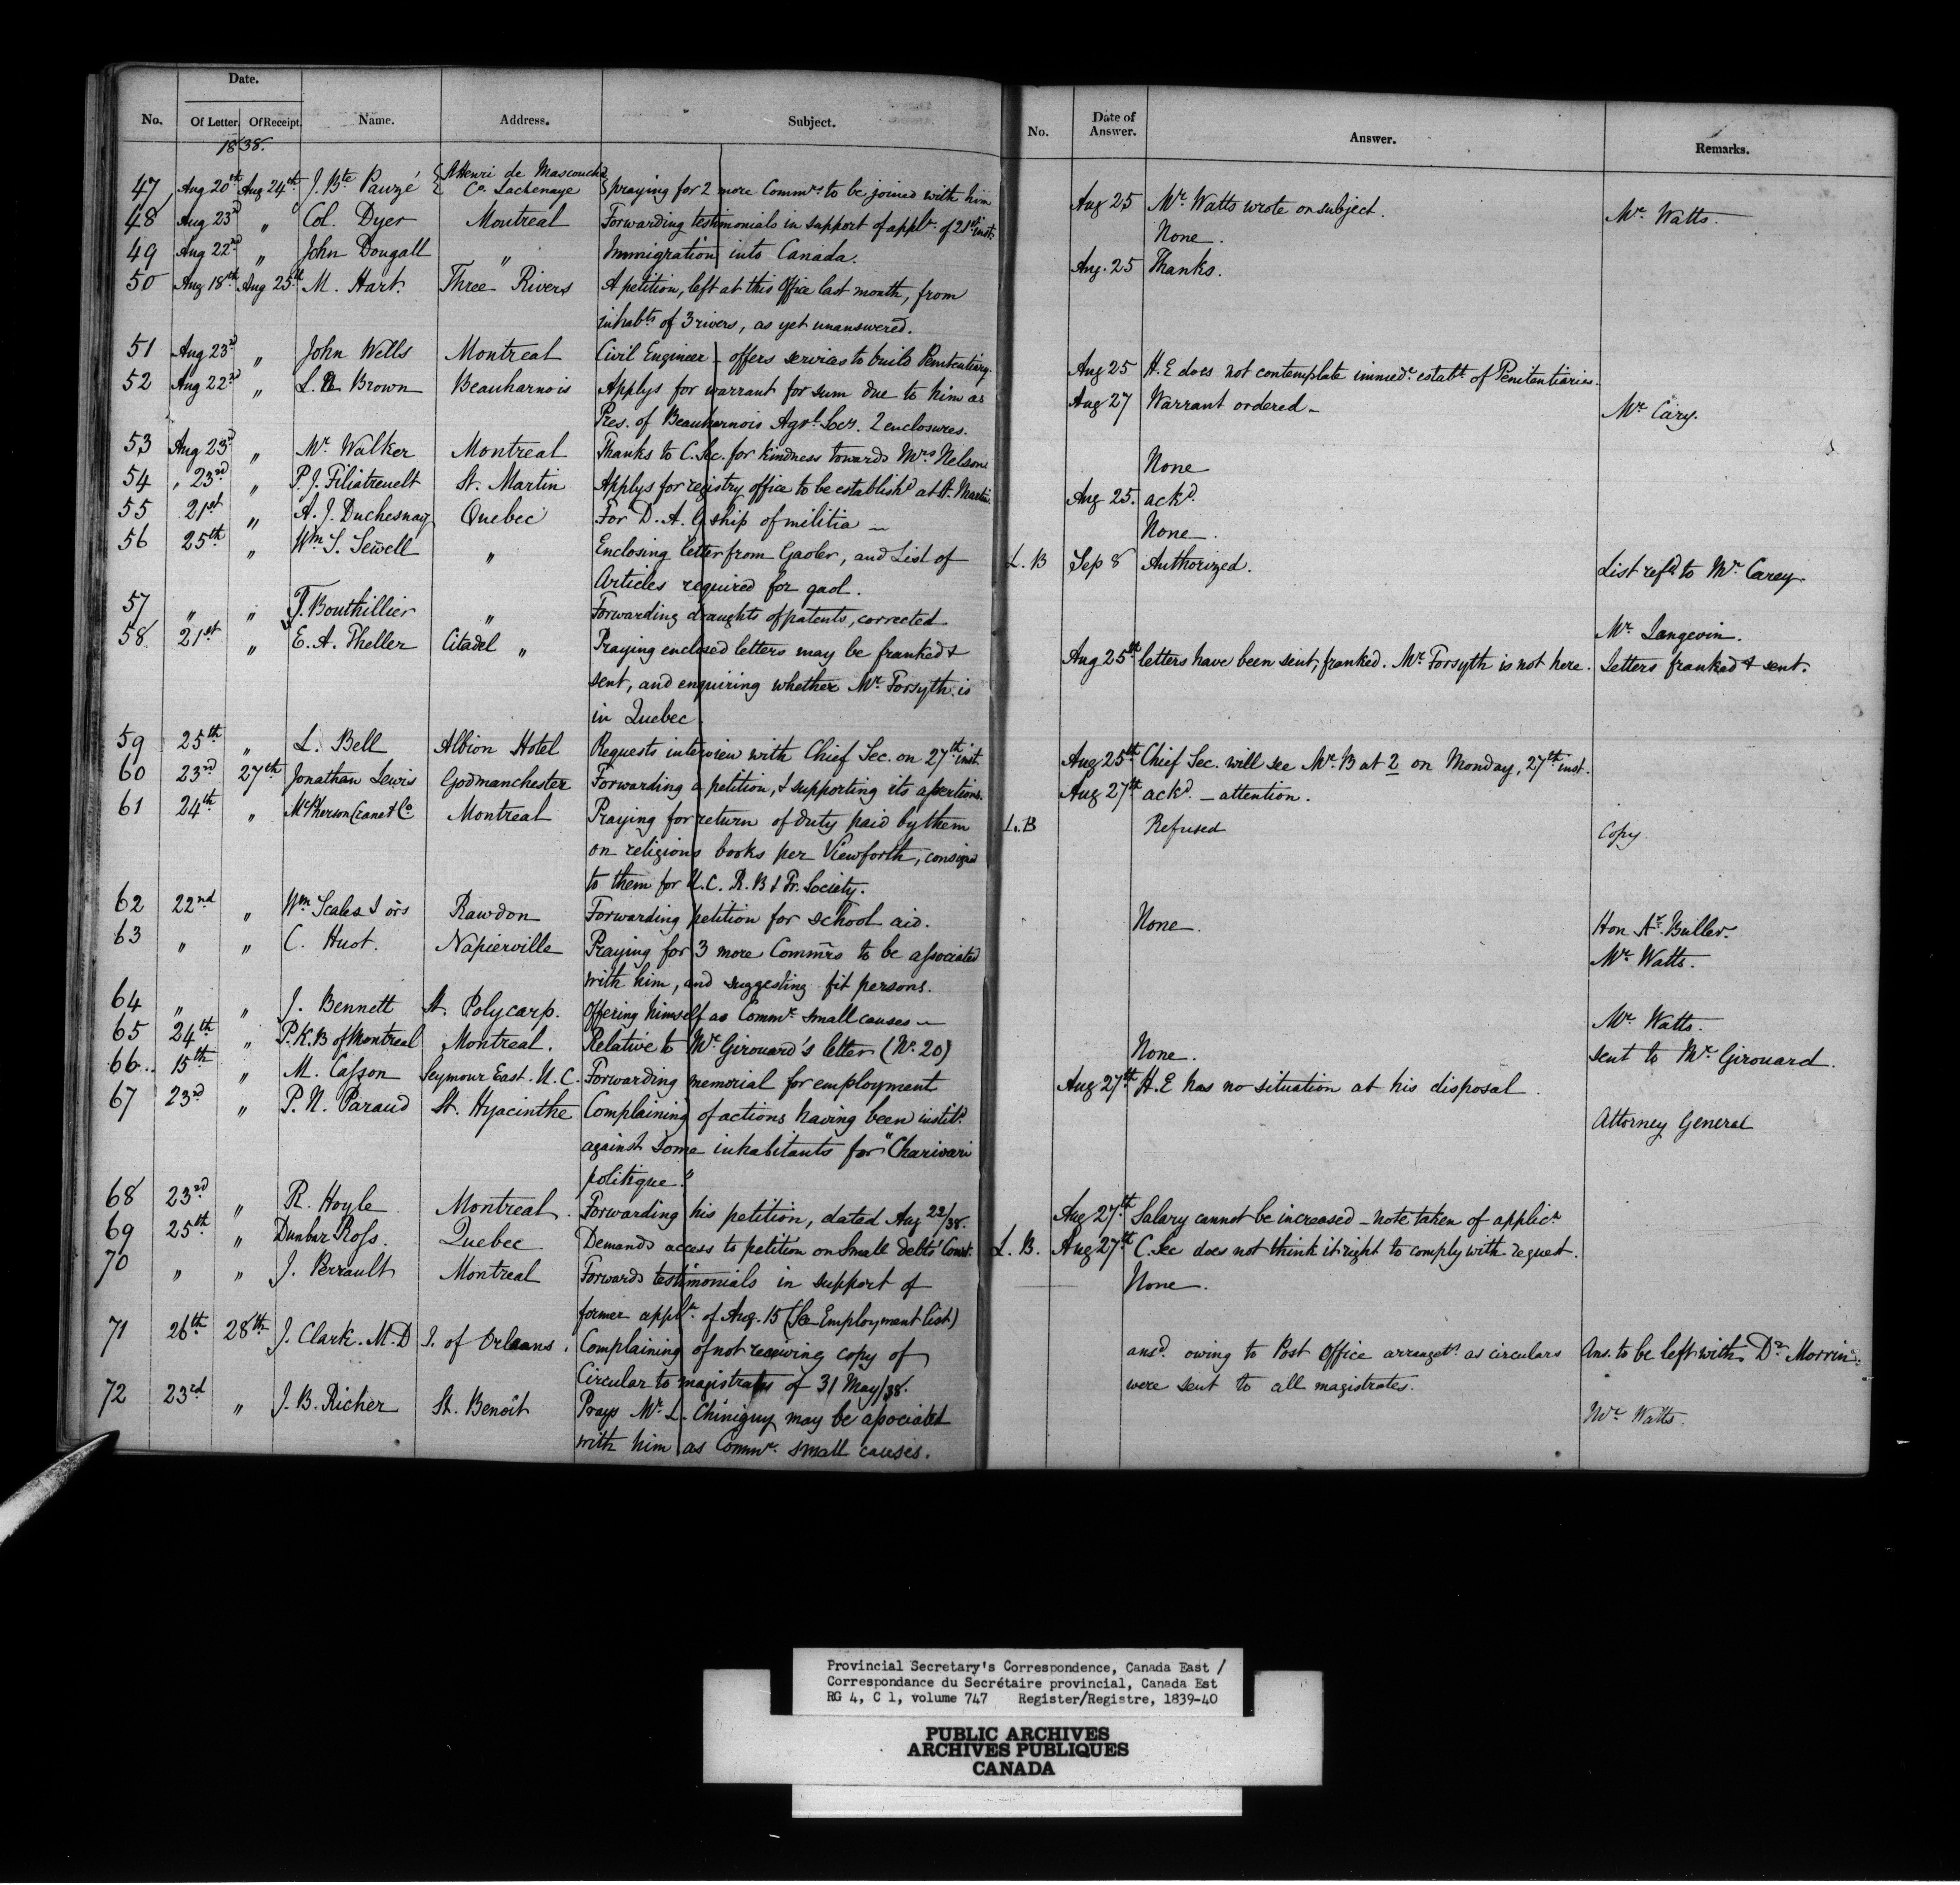 Date.
No. Of Letter. Of Receipt. Name. Address. Subject. No. Date of Answer. Answer. Remarks.
1838.
47 Aug 20th Aug 24th J. Bte Pauzé { St Henri de Mascouche
Co. Lachenaye } praying for 2 more Commrs to be joined with him Aug 25 Mr. Watts wrote on subject. Mr. Watts.
48 Aug 23d " Col. Dyer Montreal Forwarding testimonials in support of appln. of 21st inst. None.
49 Aug 22nd " John Dougall " Immigration into Canada. Aug. 25 Thanks.
50 Aug 18th Aug 25th M. Hart. Three Rivers A petition, left at this Office last month, from
inhabts of 3 rivers, as yet unanswered.
51 Aug 23d " John Wells Montreal Civil Engineer – offers services to build Penitentiary. Aug 25 H.E does not contemplate immede. establt. of Penitentiaries.
52 Aug 22d " L. Brown Beauharnois Applys for warrant for sum due to him as Aug 27 Warrant ordered – Mr Cary.
Pres. of Beauharnois Agrl. Socy. 2 enclosures.
53 Aug 23d " Mr. Walker Montreal Thanks to C. Sec. for kindness towards Mrs Nelson None
54 " 23rd " P. J. Filiatreuelt St. Martin Applys for registry office to be establishd at St. Martin Aug 25. ackd.
55 21st " A. J. Duchesnay Quebec For D. A. G ship of militia – None.
56 25th " Wm S. Sewell " Enclosing letter from Gaoler, and List of L. B Sep 8 Authorized. List refd to Mr. Carey
Articles required for gaol.
57 " " T. Bouthillier " Forwarding draughts of patents, corrected Mr. Langevin.
58 21st " E. A. Theller Citadel " Praying enclosed letters may be franked & Aug 25th letters have been sent, franked. Mr. Forsyth is not here. Letters franked & sent.
sent, and enquiring whether Mr. Forsyth is
in Quebec.
59 25th " L. Bell Albion Hotel Requests interview with Chief Sec. on 27th inst. Aug 25th Chief Sec. will see Mr. B at 2 on Monday, 27th inst.
60 23rd 27th Jonathan Lewis Godmanchester Forwarding a petition, & supporting its assertions. Aug 27th ackd. – attention.
61 24th " McPherson Crane & Co Montreal Praying for return of duty paid by them L. B Refused Copy.
on religious books per Viewforth, consigned
to them for U.C. R. B & Tr. Society.
62 22nd " Wm Scales & ors Rawdon Forwarding petition for school aid. None. Hon Ar. Buller.
63 " " C. Huot. Napierville Praying for 3 more Commrs to be associated Mr. Watts.
with him, and suggesting fit persons.
64 " " J. Bennett St. Polycarp. Offering himself as Commr. small causes – Mr. Watts.
65 24th " P.K.B of Montreal Montreal. Relative to Mr Girouard's letter (No. 20) None. sent to Mr. Girouard
66. 15th " M. Casson Seymour East. U.C. Forwarding memorial for employment Aug 27th H.E has no situation at his disposal.
67 23rd " P. N. Paraud St. Hyacinthe Complaining of actions having been institd. Attorney General
against some inhabitants for "Charivari
politique."
68 23rd " R. Hoyle Montreal. Forwarding his petition, dated Aug 22/38. Aug 27th Salary cannot be increased – note taken of applicn
69 25th " Dunbar Ross. Quebec. Demands access to petition on Small debts' Court. L. B. Aug 27th C. Sec does not think it right to comply with request.
70 " " J. Perrault Montreal Forwards testimonials in support of None.
former appln. of Aug. 15 (See Employment list)
71 26th 28th J. Clark. M.D I. of Orleans. Complaining of not receiving copy of ansd. owing to Post Office arrangets. as circulars Ans. to be left with Dr Morrin.
Circular to magistrates of 31 May/38. were sent to all magistrates.
72 23rd " J. B. Richer St. Benoît Prays Mr. L. Chiniguy may be associated Mr Watts.
with him as Commr. small causes.
Provincial Secretary's Correspondence, Canada East /
Correspondance du Secrétaire provincial, Canada Est
RG 4, C 1, volume 747 Register/Registre, 1839-40
PUBLIC ARCHIVES
ARCHIVES PUBLIQUES
CANADA